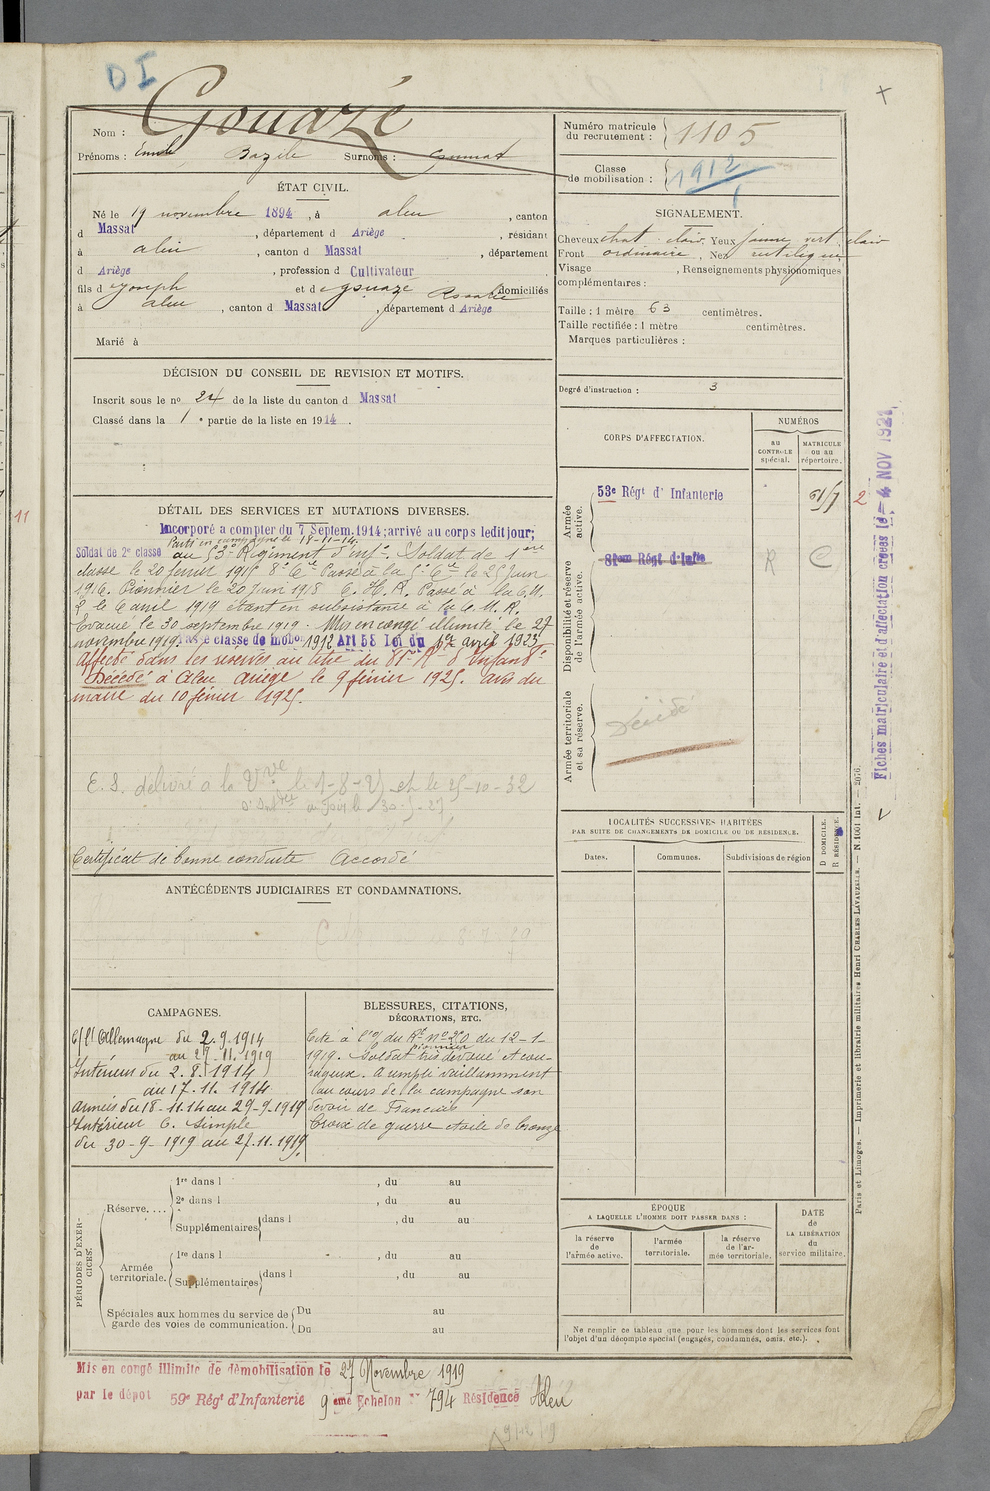 D I
Nom : Gouazé
Prénoms : Emile Bazile Surnoms :
Numéro matricule du recrutement : 1105
Classe de mobilisation : 1912
ÉTAT CIVIL.
Né le 19 novembre 1894, à aleu, canton
d Massat, département d Ariège, résidant
à aleu, canton d Massat, département
d Ariège, profession d Cultivateur
fils d Joseph et d gouaze Rosalie domiciliés
à aleu, canton d Massat, département d Ariège
Marié à
SIGNALEMENT.
Cheveux chat. clair. Yeux jaune vert clair
Front ordinaire, Nez rectiligne
Visage , Renseignements physionomiques
complémentaires :
Taille : 1 mètre 63 centimètres.
Taille rectifiée : 1 mètre centimètres.
Marques particulières :
Degré d'instruction : 3
DÉCISION DU CONSEIL DE REVISION ET MOTIFS.
Inscrit sous le no 24 de la liste du canton d Massat
Classé dans la 1e partie de la liste en 1914.
DÉTAIL DES SERVICES ET MUTATIONS DIVERSES.
Incorporé a compter du 7 Septem. 1914; arrivé au corps ledit jour;
Parti en campagne le 18-11-14.
Soldat de 2e classe au 53e Régiment d'Infie. Soldat de 1ere
classe le 20 février 1915 8e Cie Passé à la 5e Cie le 25 Juin
1916. Pionnier le 20 Juin 1918 C.H.R. Passé à la C.M.
2 le 6 avril 1919 étant en subsistance à la C.H.R.
Evacué le 30 septembre 1919. Mis en congé illimité le 27
novembre 1919. Passé classe de mobon 1912 Art 58 Loi du 1er avril 1923
Affecté dans les réserves au titre du 81e Rt d'Infantie
Décédé à Aleu Ariège le 9 février 1925. Avis du
maire du 10 février 1925.
E.S. délivré à la Vve le 1-8-25 et le 25-10-32
Certificat de bonne conduite Accordé
CORPS D'AFFECTATION.
NUMÉROS
au CONTROLE spécial.
MATRICULE ou au répertoire.
Armée active.
53e Régt d' Infanterie
Disponibilité et réserve de l'armée active.
81eme Régt d'Infie
R C
Armée territoriale et sa réserve.
Décédé
Fiches matriculaire et d'affectation créées le - 4 NOV 1921
11
2
ANTÉCÉDENTS JUDICIAIRES ET CONDAMNATIONS.
LOCALITÉS SUCCESSIVES HABITÉES
PAR SUITE DE CHANGEMENTS DE DOMICILE OU DE RÉSIDENCE.
Dates. Communes. Subdivisions de région
D DOMICILE. R RÉSIDENCE.
CAMPAGNES.
C/ l'Allemagne du 2.9.1914
au 27.11.1919
Intérieur du 2.8.1914
au 17.11.1914
Armées du 18-11.14 au 29-9-1919
Intérieur C. Simple
du 30-9-1919 au 27.11.1919.
BLESSURES, CITATIONS,
DÉCORATIONS, ETC.
Cité à l'o/ du Rt no 20 du 12-1
1919. Soldat pionnier très dévoué et cou-
rageux. A rempli vaillamment
au cours de la campagne son
devoir de Français
Croix de guerre étoile de bronze
PÉRIODES D'EXERCICES.
Réserve....
1re dans l , du au
2e dans l , du au
Supplémentaires dans l , du au
Armée territoriale.
1re dans l , du au
Supplémentaires dans l , du au
Spéciales aux hommes du service de garde des voies de communication.
Du au
Du au
ÉPOQUE
A LAQUELLE L'HOMME DOIT PASSER DANS :
la réserve de l'armée active.
l'armée territoriale.
la réserve de l'armée territoriale.
DATE de LA LIBÉRATION du service militaire.
Ne remplir ce tableau que pour les hommes dont les services font
l'objet d'un décompte spécial (engagés, condamnés, omis, etc.).
Paris et Limoges. — Imprimerie et librairie militaires Henri CHARLES-LAVAUZELLE. — N. 1001 Int. — 2076.
Mis en congé illimité de démobilisation le 27 Novembre 1919
par le dépot 59e Régt d'Infanterie 9eme Echelon No 794 Résidence Aleu